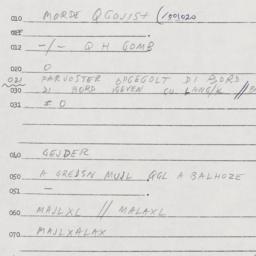 010 MORDE QGOJIST (1501020
011
012 -/- Q H GOMB
020 O
021 PARVOSTER DI BORD
030 DI BORD CU LANG/K //
031 # O
040 GEJDER
050 A GREDSN MUJL QGL A BALHOZE
051 -
060 MAJLXL // MALAXL
070 MAJLXALAX